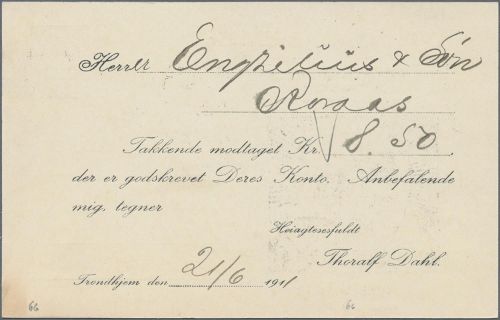 Herrer Engzelius & Søn
Røraas
Takkende modtaget Kr. 8.50
der er godskrevet Deres Konto. Anbefalende
mig, tegner
Høiagtesesfuldt
Thoralf Dahl.
Trondhjem den 21/6 1911
66 66